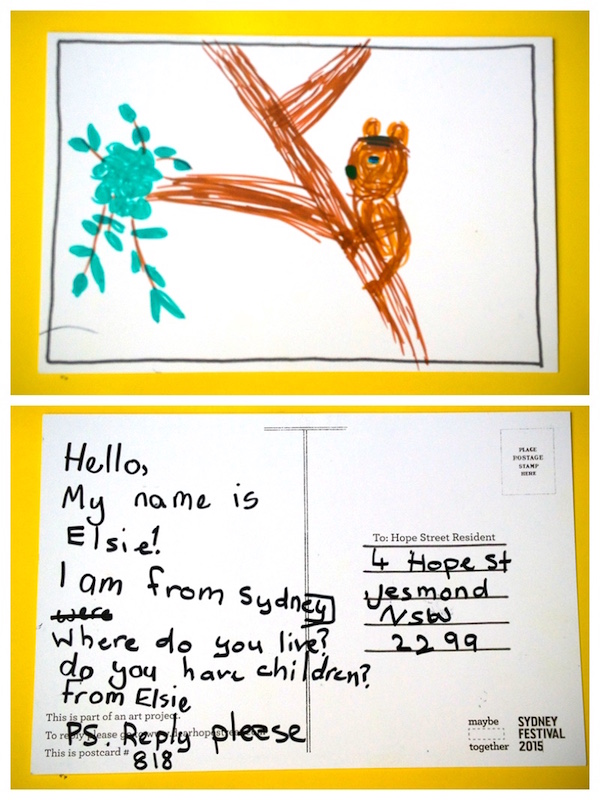 Hello,
My name is
Elsie!
I am from Sydney
were
Where do you live?
do you have children?
from Elsie
This is part of an art project.
PS. Reply pleese
To reply please go to
This is postcard #
818
PLACE
POSTAGE
STAMP
HERE
To: Hope Street Resident
4 Hope St
Jesmond
NSW
2299
maybe
together
SYDNEY
FESTIVAL
2015